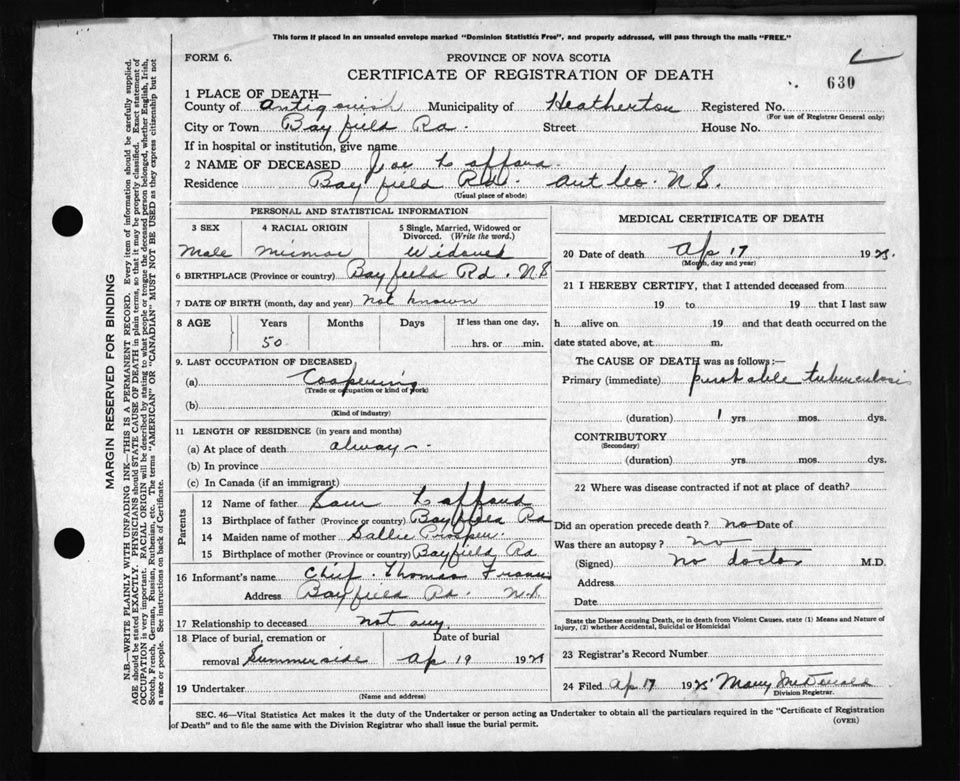 This form if placed in an unsealed envelope marked "Dominion Statistics Free", and properly addressed, will pass through the mails "FREE."
FORM 6.
PROVINCE OF NOVA SCOTIA
CERTIFICATE OF REGISTRATION OF DEATH
630
1 PLACE OF DEATH—
County of Antigonish Municipality of Heatherton Registered No.
(For use of Registrar General only)
City or Town Bayfield Rd. Street House No.
If in hospital or institution, give name
2 NAME OF DECEASED Joe Laffard
Residence Bayfield Rd. Ant Co. N S.
(Usual place of abode)
PERSONAL AND STATISTICAL INFORMATION
3 SEX 4 RACIAL ORIGIN 5 Single, Married, Widowed or Divorced. (Write the word.)
Male Micmac Widowed
6 BIRTHPLACE (Province or country) Bayfield Rd. N S
7 DATE OF BIRTH (month, day and year) not known
8 AGE Years Months Days If less than one day,
50 hrs. or min.
9. LAST OCCUPATION OF DECEASED
(a) Coopering
(Trade or occupation or kind of work)
(b)
(Kind of industry)
11 LENGTH OF RESIDENCE (in years and months)
(a) At place of death always
(b) In province
(c) In Canada (if an immigrant)
Parents
12 Name of father Laffard
13 Birthplace of father (Province or country) Bayfield Rd
14 Maiden name of mother Sallie Prosper
15 Birthplace of mother (Province or country) Bayfield Rd
16 Informant's name Chief Thomas Francis
Address Bayfield Rd. N.S.
17 Relationship to deceased not any
18 Place of burial, cremation or Date of burial
removal Summerside Ap 19 192
19 Undertaker
(Name and address)
MEDICAL CERTIFICATE OF DEATH
20 Date of death Ap 17 192
(Month, day and year)
21 I HEREBY CERTIFY, that I attended deceased from
19 to 19 that I last saw
h alive on 19 and that death occurred on the
date stated above, at m.
The CAUSE OF DEATH was as follows:—
Primary (immediate) probable tuberculosis
(duration) 1 yrs. mos. dys.
CONTRIBUTORY
(Secondary)
(duration) yrs. mos. dys.
22 Where was disease contracted if not at place of death?
Did an operation precede death? no Date of
Was there an autopsy? no
(Signed) no doctor M.D.
Address
Date
State the Disease causing Death, or in death from Violent Causes. state (1) Means and Nature of
Injury, (2) whether Accidental, Suicidal or Homicidal
23 Registrar's Record Number
24 Filed Ap 17 192 Mary McDonald
Division Registrar.
SEC. 46—Vital Statistics Act makes it the duty of the Undertaker or person acting as Undertaker to obtain all the particulars required in the "Certificate of Registration
of Death" and to file the same with the Division Registrar who shall issue the burial permit.
(OVER)
MARGIN RESERVED FOR BINDING
N.B.—WRITE PLAINLY WITH UNFADING INK—THIS IS A PERMANENT RECORD. Every item of information should be carefully supplied.
AGE should be stated EXACTLY. PHYSICIANS should STATE CAUSE OF DEATH in plain terms, so that it may be properly classified. Exact statement of
OCCUPATION is very important. RACIAL ORIGIN will be described by stating to what people or tongue the deceased person belonged, whether English, Irish,
Scotch, French, German, Russian, Ruthenian, etc. The terms "AMERICAN" OR "CANADIAN" MUST NOT BE USED as they express citizenship but not
a race or people. See instructions on back of Certificate.